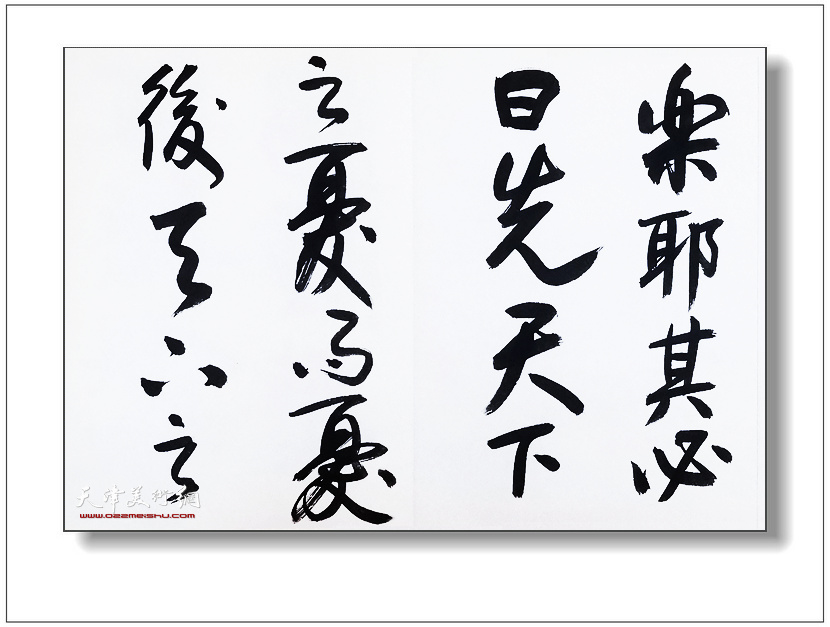 樂耶其必
曰先天下
之憂而憂
後天下之
天津美術網
www.022meishu.com